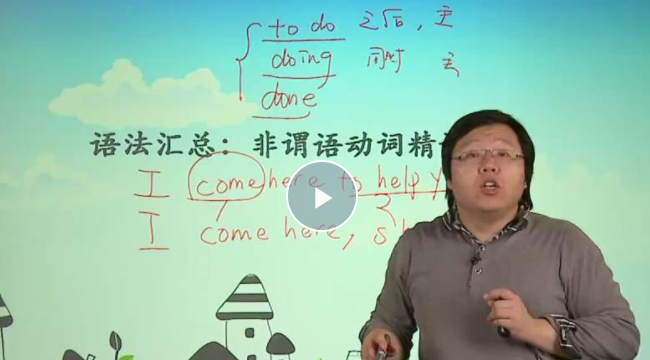 to do 之后, 主
doing 同时 主
done
语法汇总：非谓语动词精
I come here to help y
I come here, s